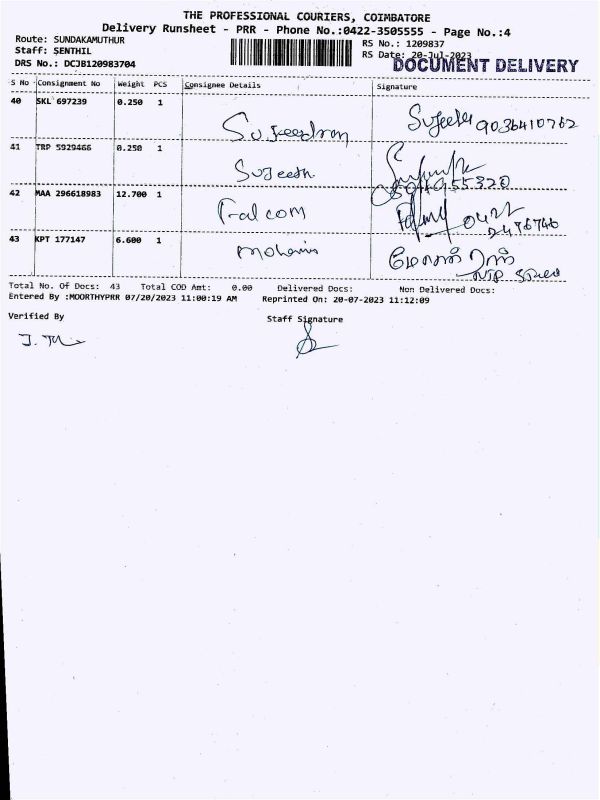 THE PROFESSIONAL COURIERS, COIMBATORE
Delivery Runsheet - PRR - Phone No.:0422-3505555 - Page No.:4
Route: SUNDAKAMUTHUR
RS No.: 1209837
Staff: SENTHIL
RS Date: 20-Jul-2023
DRS No.: DCJB120983704
DOCUMENT DELIVERY
S No Consignment No Weight PCS Consignee Details Signature
40 SKL 697239 0.250 1
Sujeesh 9036410762
41 TRP 5929466 0.250 1
Sujeesh
42 MAA 296618983 12.700 1
Falcom
0422
2476746
43 KPT 177147 6.600 1
Total No. Of Docs: 43 Total COD Amt: 0.00 Delivered Docs: Non Delivered Docs:
Entered By :MOORTHYPRR 07/20/2023 11:00:19 AM Reprinted On: 20-07-2023 11:12:09
Verified By Staff Signature